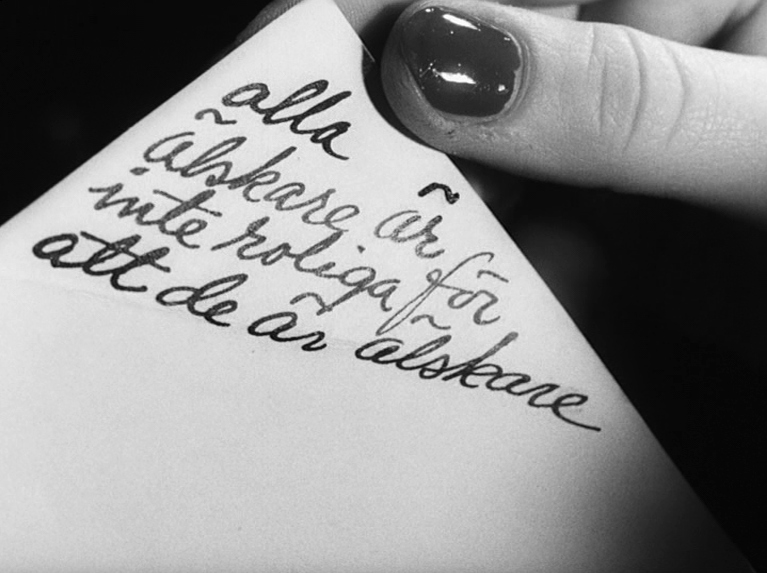 alla
älskare är för
inte roliga för
att de är älskare